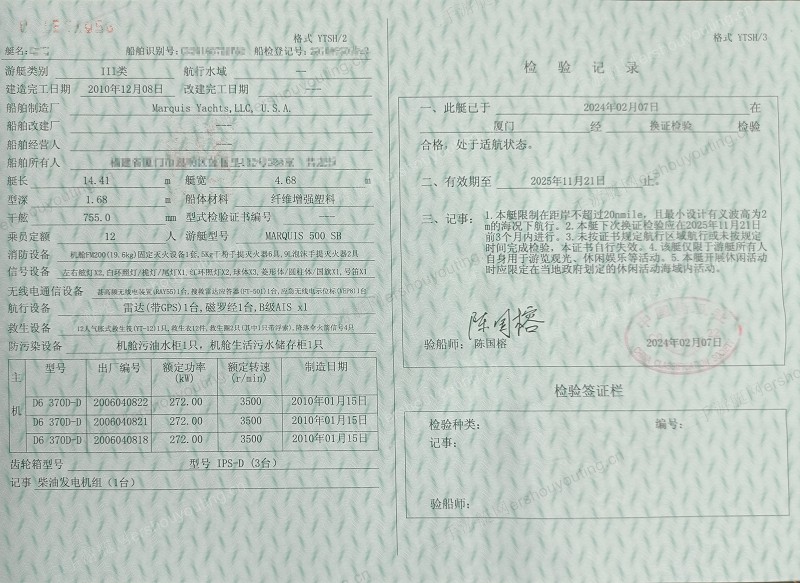 格式 YTSH/2
艇名:
船舶识别号:
船检登记号:
游艇类别 III类 航行水域 ——
建造完工日期 2010年12月08日 改建完工日期 ---
船舶制造厂 Marquis Yachts,LLC, U.S.A.
船舶改建厂 ---
船舶经营人 ---
船舶所有人
艇长 14.41 m 艇宽 4.68 m
型深 1.68 m 船体材料 纤维增强塑料
干舷 755.0 mm 型式检验证书编号 ---
乘员定额 12 人 游艇型号 MARQUIS 500 SB
消防设备 机舱FM200(19.6kg)固定灭火设备1套,5Kg干粉手提灭火器6具,9L泡沫手提灭火器2具
信号设备 左右舷灯X2,白环照灯/桅灯/尾灯X1,红环照灯X2,球体X3,菱形体/圆柱体/国旗X1,号笛X1
无线电通信设备 甚高频无线电装置(RAY55)1台,搜救雷达应答器(FT-501)1台,应急无线电示位标(VEP8)1台
航行设备 雷达(带GPS)1台,磁罗经1台,B级AIS x1
救生设备 12人气胀式救生筏(YT-12)1只,救生衣12件,救生圈2只(其中1只带浮索),降落伞火箭信号4只
防污染设备 机舱污油水柜1只，机舱生活污水储存柜1只
主机 型号 出厂编号 额定功率(kW) 额定转速(r/min) 制造日期
D6 370D-D 2006040822 272.00 3500 2010年01月15日
D6 370D-D 2006040821 272.00 3500 2010年01月15日
D6 370D-D 2006040818 272.00 3500 2010年01月15日
齿轮箱型号 型号 IPS-D (3台)
记事 柴油发电机组（1台）
格式 YTSH/3
检 验 记 录
一、此艇已于 2024年02月07日 在
厦门 经 换证检验 检验
合格，处于适航状态。
二、有效期至 2025年11月21日 止。
三、记事: 1.本艇限制在距岸不超过20nmile，且最小设计有义波高为2
m的海况下航行。2.本艇下次换证检验应在2025年11月21日
前3个月内进行。3.未按证书规定航行区域航行或未按规定
时间完成检验，本证书自行失效。4.该艇仅限于游艇所有人
自身用于游览观光、休闲娱乐等活动。5.本艇开展休闲活动
时应限定在当地政府划定的休闲活动海域内活动。
陈国榕
验船师: 陈国榕
2024年02月07日
检验签证栏
检验种类: 编号:
记事:
验船师: